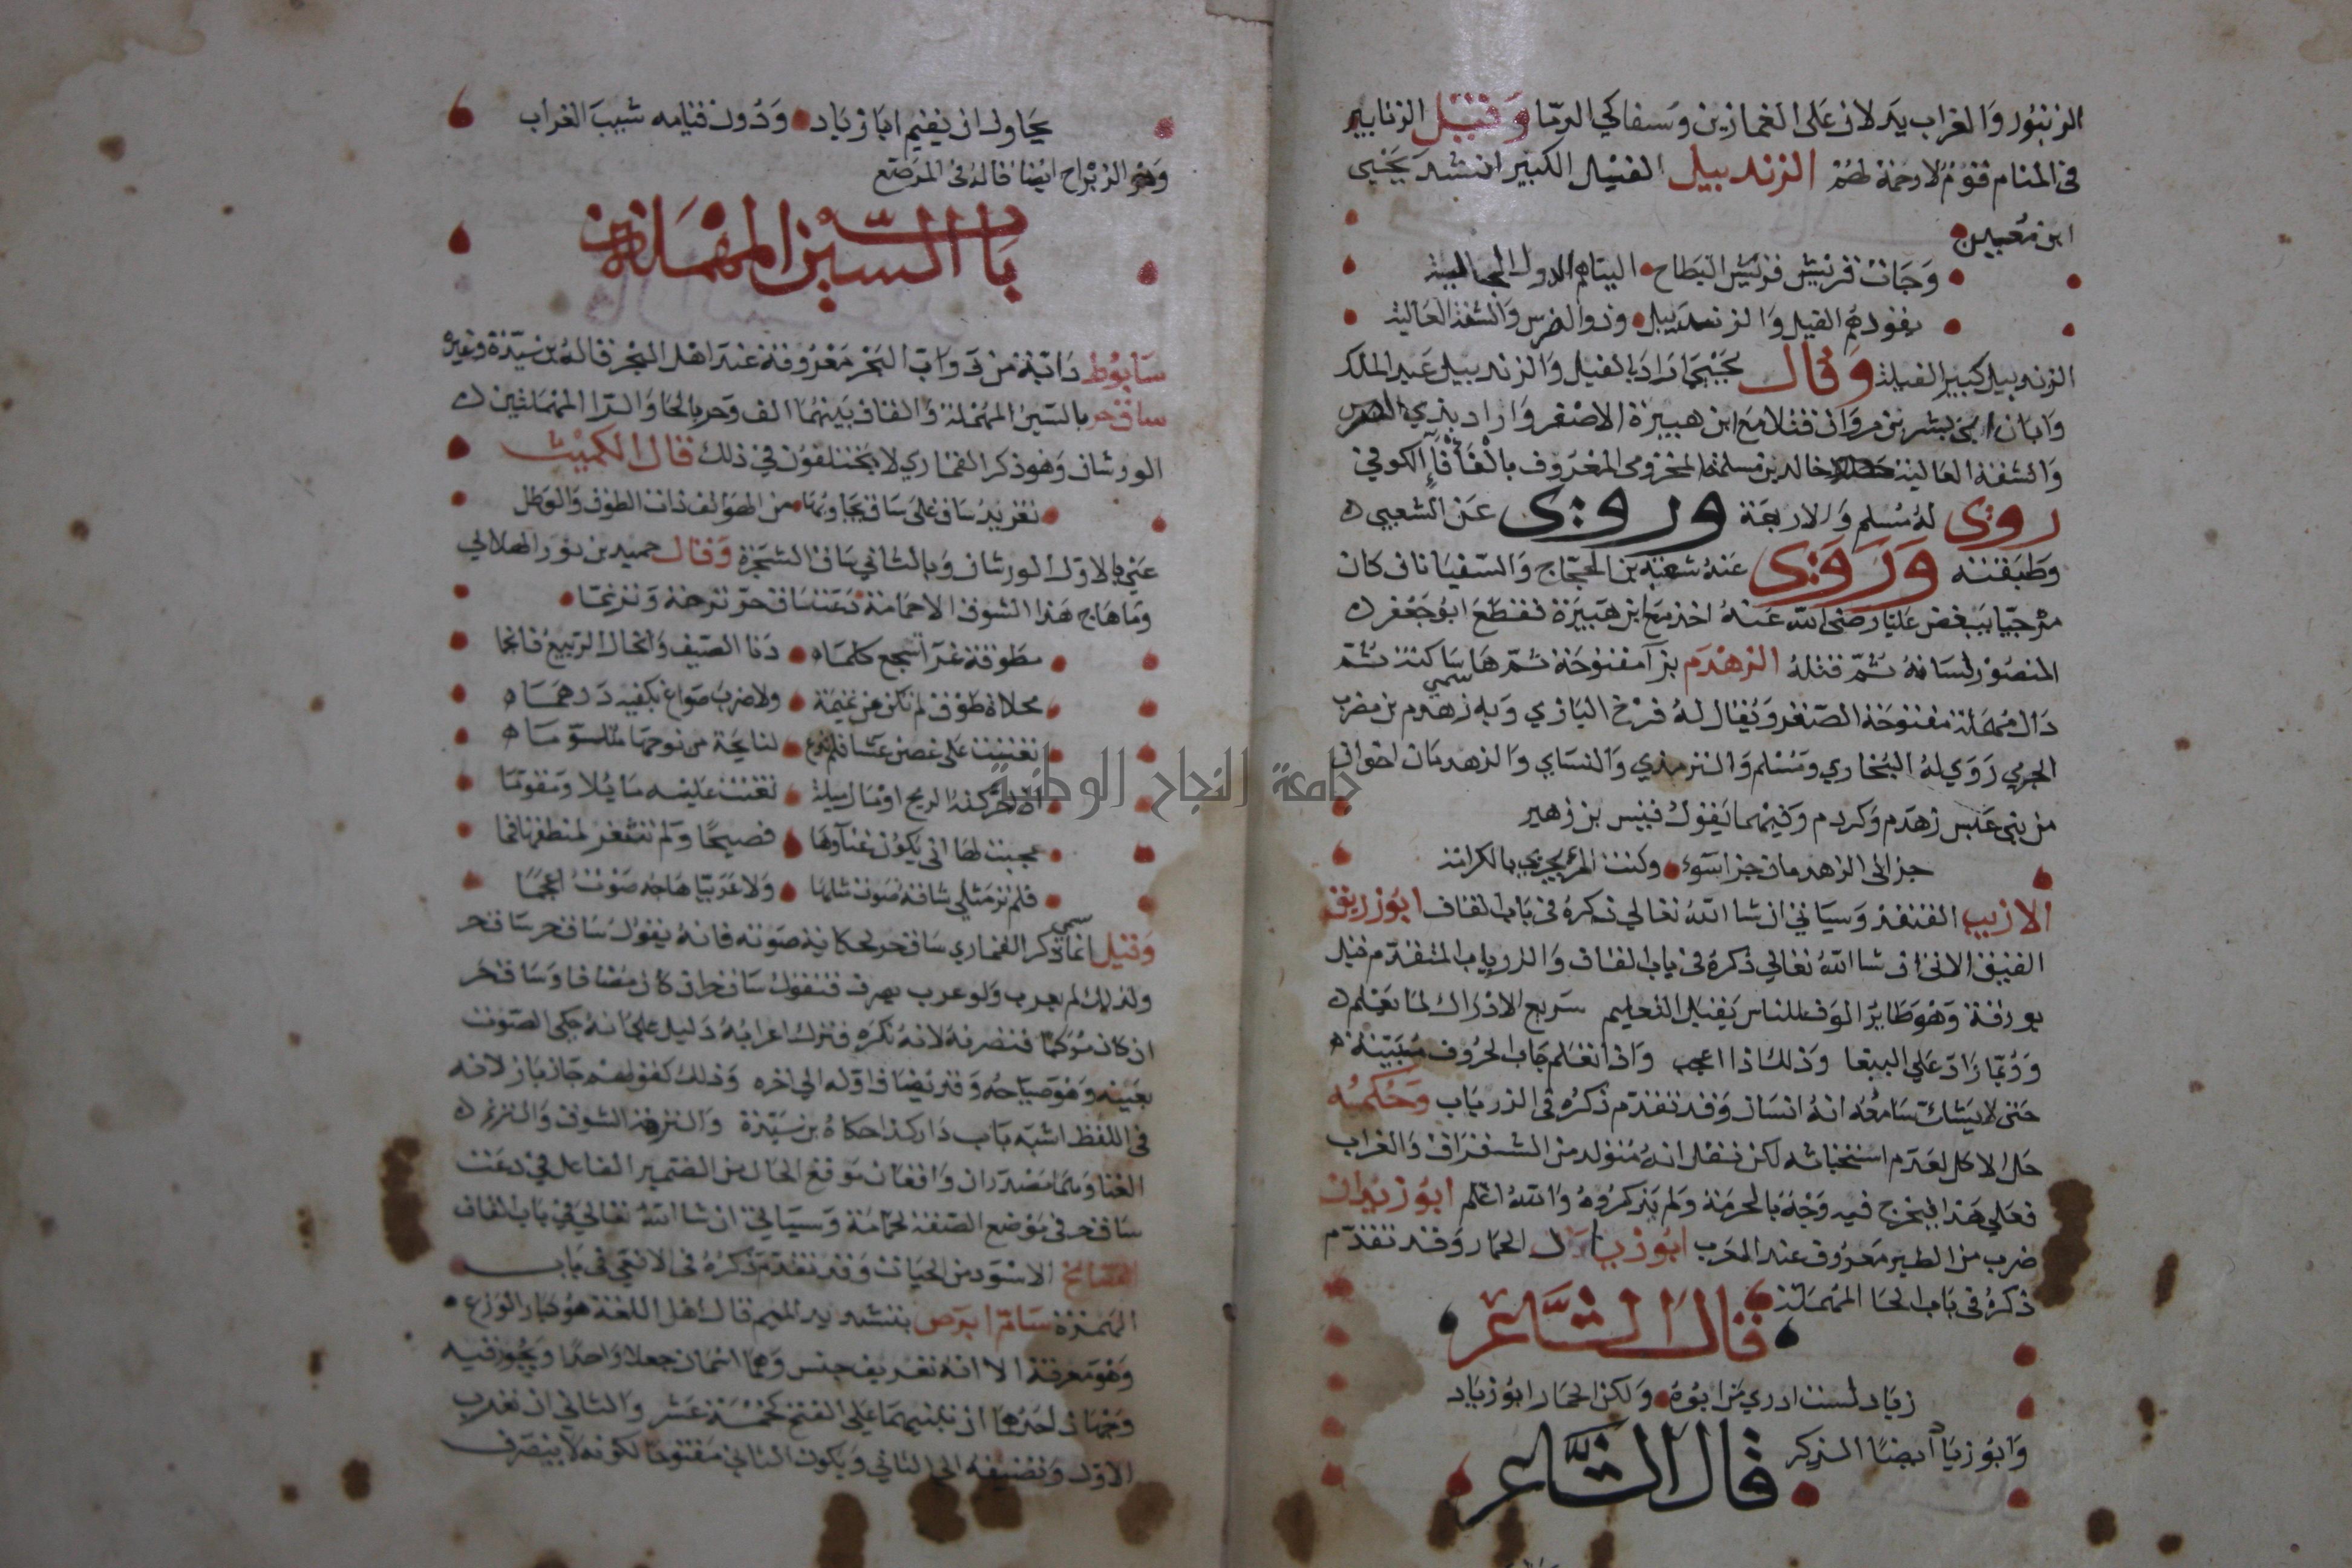 الزنبور والغراب يدلان على الغمازين وسفاكي الدما وقيل الزنابير
في المنام قوم لا رحمة لهم الزندبيل الفيل الكبير انشد يحيى
ابن معين
وجات قريش قريش البطاح اليناهم الدول الجاليه
يقودهم الفيل والزندبيل وذو الضرس والشفة العاليه
الزندبيل كبير الفيلة وقال يحيى اراد بالفيل والزندبيل عبد الملك
وابان ابني بشر بن مروان قتلا مع ابن هبيرة الاصغر واراد بذي الضرس
والشفة العالية خالد بن مسلمة المخزومي المعروف بالفأفأ الكوفي
روى له مسلم والاربعة وروى عن الشعبي
وطبقته وروى عنه شعبة بن الحجاج والسفيانان كان
مرجيا يبغض عليا رضي الله عنه اخذ مع ابن هبيرة فقطع ابو جعفر
المنصور لسانه ثم قتله الزهدم بزا مفتوحة ثم ها ساكنة ثم
دال مهملة مفتوحة الصقر ويقال له فرخ البازي وبه سمي زهدم بن مضرب
الجرمي روى له البخاري ومسلم والترمذي والنساي والزهدمان اخوان
من بني عبس زهدم وكردم وفيهما يقول قيس بن زهير
جزاني الزهدمان جزا سوء وكنت المرء يجزي بالكرامة
الازيب القنفد وسياتي ان شا الله تعالى ذكره في باب القاف ابو زريق
القيق الاتي ان شا الله تعالى ذكره في باب القاف والزرياب المتقدم قيل
بورقة وهو طاير الوف للناس يقبل التعليم سريع الادراك لما يعلم
وربما زاد على الببغا وذلك اذا انجب واذا تعلم جا بالحروف مبينة
حتى لا يشك سامعه انه انسان وقد تقدم ذكره في الزرياب وحكمه
حل الاكل لعدم استخباثه لكن نقل انه متولد من الشقراق والغراب
فعلى هذا يتخرج فيه وجه بالحرمة ولم يذكروه والله اعلم ابو زيدان
ضرب من الطير معروف عند العرب ابو زياد الحمار وقد تقدم
ذكره في باب الحا المهملة قال الشاعر
زياد لست ادري من ابوه ولكن الحمار ابو زياد
وابو زياد ايضا الذكر قال الشاعر
يحاول ان يقيم ابا زياد ودون قيامه شيب الغراب
وهو الزباح ايضا قاله في المرصع
باب السين المهملة
سابوط دابة من دواب البحر معروفة عند اهل البحر قاله بن سيدة وغيره
ساق حر بالسين المهملة والقاف بينهما الف وحر بالحا والرا المهملتين
الورشان وهو ذكر القماري لا يختلفون في ذلك قال الكميت
تغريد ساق على ساق يجاوبها من الهواتف ذات الطوق والعطل
عني بالاول الورشان وبالثاني ساق الشجرة وقال حميد بن ثور الهلالي
وما هاج هذا الشوق الا حمامة دعت ساق حر ترحة وترنما
مطوقة غرا تسجع كلما دنا الصيف وانحال الربيع فانجما
محلاة طوق لم تكن من تميمة ولا ضرب صواغ بكفيه درهما
تغنت على غصن عشا فلم تدع لنايحة من نوحها متلوما
اذا حركته الريح او مال ميلة تغنت عليه مايلا ومقوما
عجبت لها انى يكون غناوها فصيحا ولم تثغر لمنطقها فما
فلم ار مثلي شاقه صوت مثلها ولا عربيا هاجه صوت اعجما
وقيل انما سمي ذكر القماري ساق حر لحكاية صوته فانه يقول ساق حر ساق حر
ولذلك لم يعرب ولو عرب صرف فتقول ساق حر ان كان مضافا وساق حر
ان كان مركبا فتصرفه لانه نكره فترك اعرابه دليل على انه حكى الصوت
بعينه وهو صياحه وقد يضاف اوله الى اخره وذلك كقولهم خازباز لانه
في اللفظ اشبه باب دار كذا حكاه بن سيدة والترحة الشوق والترنم
الغنا وهما مصدران واقعان موقع الحال من الضمير الفاعل في دعت
ساق حر في موضع الصفة لحمامة وسياتي ان شا الله تعالى في باب القاف
السالخ الاسود من الحيات وقد تقدم ذكره في الافعى في باب
الهمزة سام ابرص بتشديد الميم قال اهل اللغة هو كبار الوزغ
وهو معرفة الا انه تعريف جنس وهما اسمان جعلا واحدا ويجوز فيه
وجهان احدهما ان تبنيهما على الفتح كخمسة عشر والثاني ان تعرب
الاول وتضيفه الى الثاني ويكون الثاني مفتوحا لكونه لا ينصرف
جامعة النجاح الوطنية